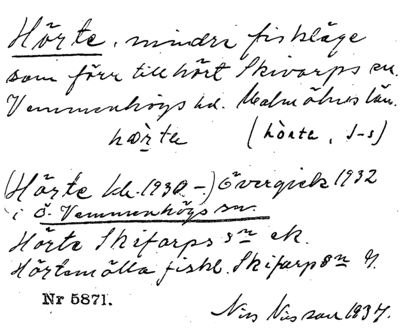 Hörte, mindre fiskläge
som förr tillhört Skivarps sn.
Vemmenhögs hd. Malmöhus län.
hœrte (hörte, J-s)
(Hörte kb. 1930.-.) Övergick 1932
i Ö. Vemmenhögs sn.
Hörte Skifarps sn ek.
Hörtemölla fiskl. Skifarps sn
Nr 5871.
Nils Nilsson 1937.